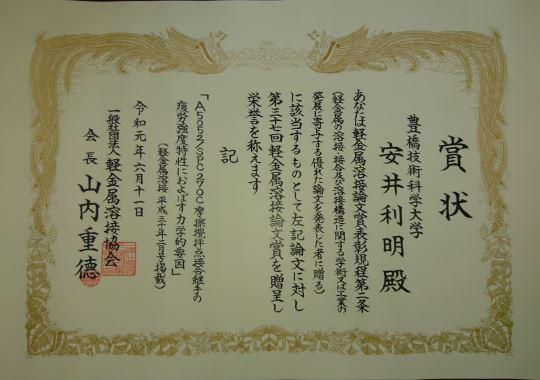 賞状
豊橋技術科学大学
安井利明殿
あなたは軽金属溶接論文賞表彰規程第二条
(軽金属の溶接、接合及び溶接構造に関する学術又は工業の
発展に寄与する優れた論文を発表した者に贈る)
に該当するものとして左記論文に対し
第三十七回軽金属溶接論文賞を贈呈し
栄誉を称えます
記
「A5052/SPC270C摩擦攪拌点接合継手の
疲労強度特性におよぼす力学的要因」
(軽金属溶接 平成三十年三月号掲載)
令和元年六月十一日
一般社団法人軽金属溶接協会
会長 山内重德